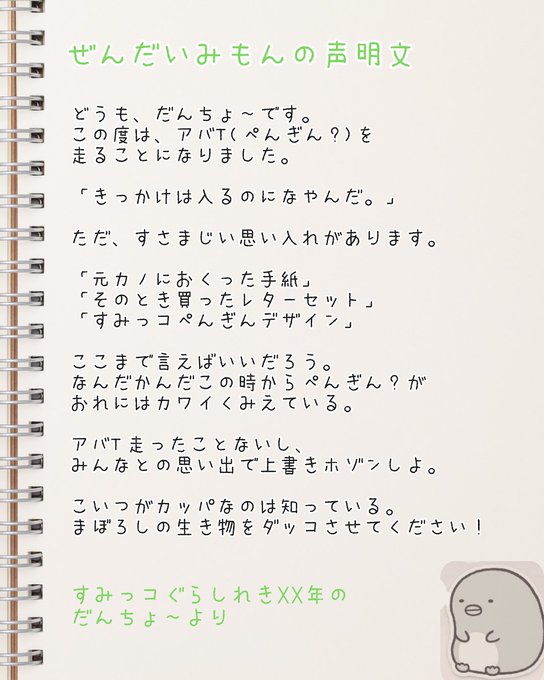 ぜんだいみもんの声明文
どうも、だんちょ～です。
この度は、アバT(ぺんぎん?)を
走ることになりました。
「きっかけは入るのになやんだ。」
ただ、すさまじい思い入れがあります。
「元カノにおくった手紙」
「そのとき買ったレターセット」
「すみっコぺんぎんデザイン」
ここまで言えばいいだろう。
なんだかんだこの時からぺんぎん?が
おれにはカワイくみえている。
アバT走ったことないし、
みんなとの思い出で上書きホゾンしよ。
こいつがカッパなのは知っている。
まぼろしの生き物をダッコさせてください!
すみっコぐらしれきXX年の
だんちょ～より